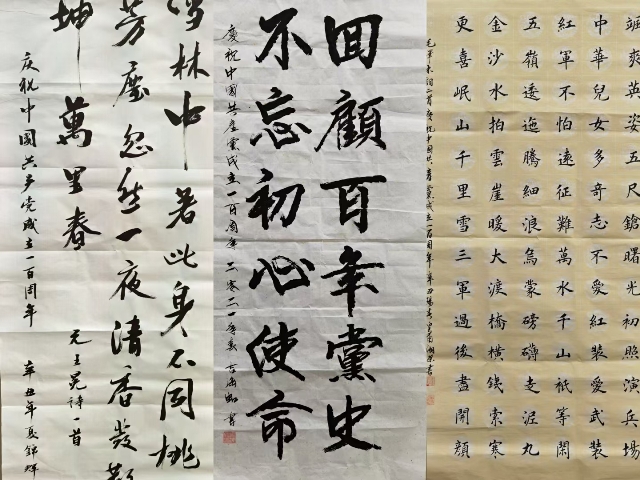 颯爽英姿五尺鎗曙光初照演兵場
中華兒女多奇志不愛紅裝愛武裝
紅軍不怕遠征難萬水千山衹等閑
五嶺逶迤騰細浪烏蒙磅礴走泥丸
金沙水拍雲崖暖大渡橋橫鐵索寒
更喜岷山千里雪三軍過後盡開顏
慶祝中國共產黨成立一百周年 辛丑
回顧百年黨史
不忘初心使命
慶祝中國共產黨成立一百周年二零二一年夏 書
雪林中著此身不同桃
芳塵忽然一夜清香發散
坤萬里春
元王冕詩一首
庆祝中國共产党成立一百周年 辛丑年夏錦輝